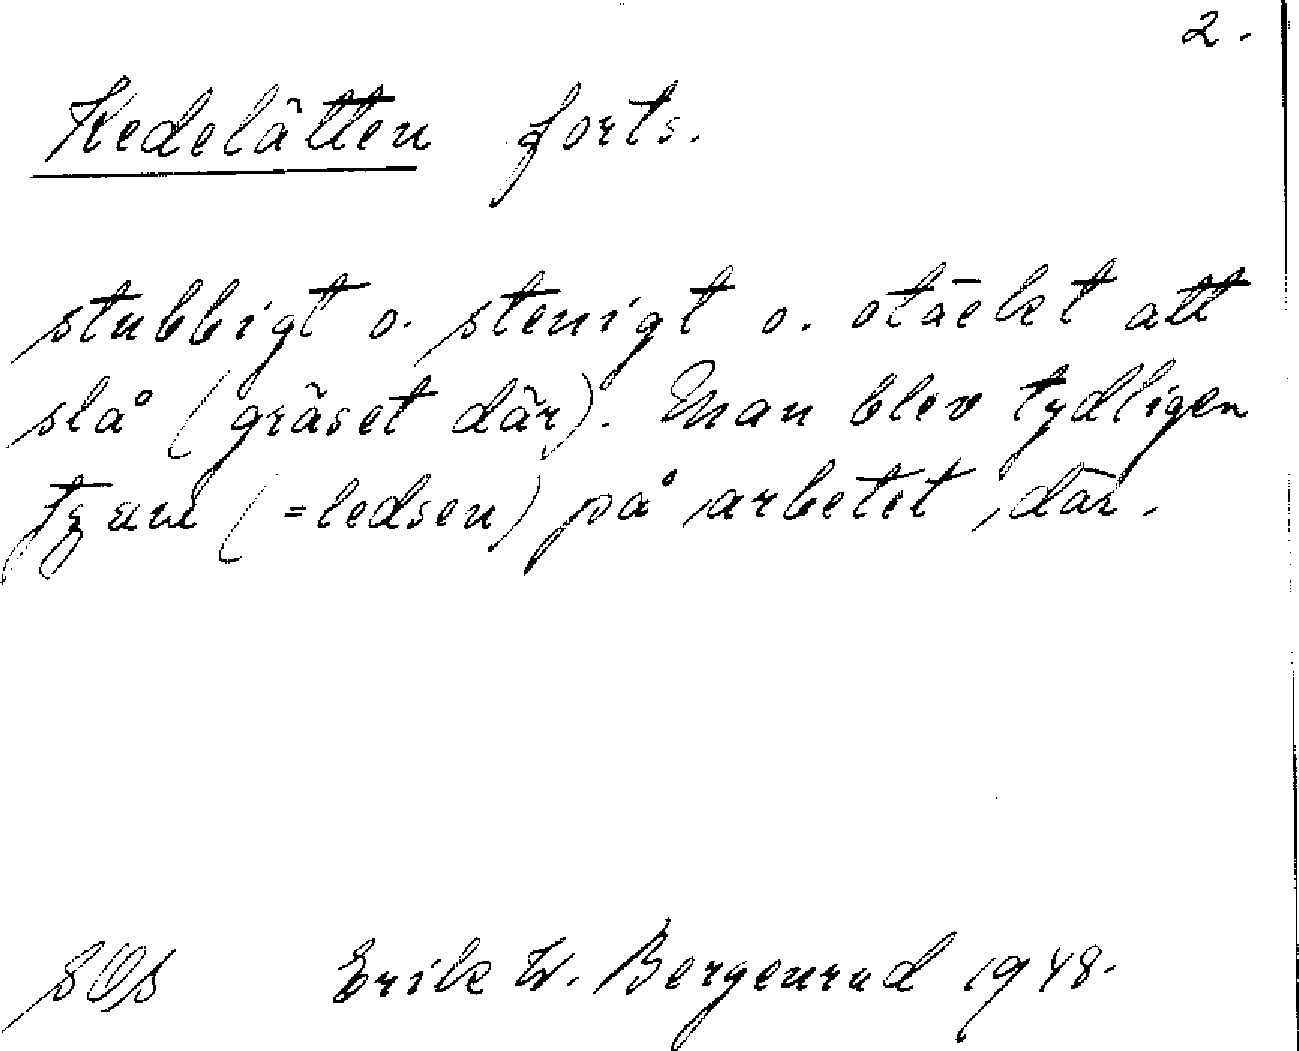 2.
Kedelätten forts.
stubbigt o. stenigt o. otäckt att
slå (gräset där). Man blev tydligen
(=ledsen) på arbetet där.
Erik W. Bergenrud 1948.